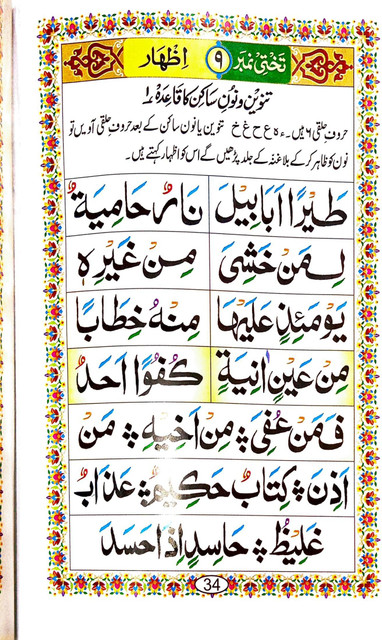 تختی نمبر ۹ اِظْهَار
تنوین و نون ساکن کا قاعدہ ۱
حروف حلقی ۶ ہیں۔ ء ہ ع ح غ خ تنوین یا نون ساکن کے بعد حروف حلقی آویں تو
نون کو ظاہر کر کے بلا غنہ کے جلد پڑھیں گے اس کو اظہار کہتے ہیں۔
طَيْرًا اَبَابِيْلَ نَارٌ حَامِيَةٌ
لِمَنْ خَشِيَ مِنْ غَيْرِهٖ
يَوْمَئِذٍ عَلَيْهَا مِنْهُ خِطَابًا
مِنْ عَيْنٍ اٰنِيَةٍ كُفُوًا اَحَدٌ
فَمَنْ عُفِيَ ۞ مِنْ اَخِيْهِ ۞ مَنْ
اَذِنَ ۞ كِتَابٌ حَكِيْمٌ ۞ عَذَابٌ
غَلِيْظٌ ۞ حَاسِدٍ اِذَا حَسَدَ
34